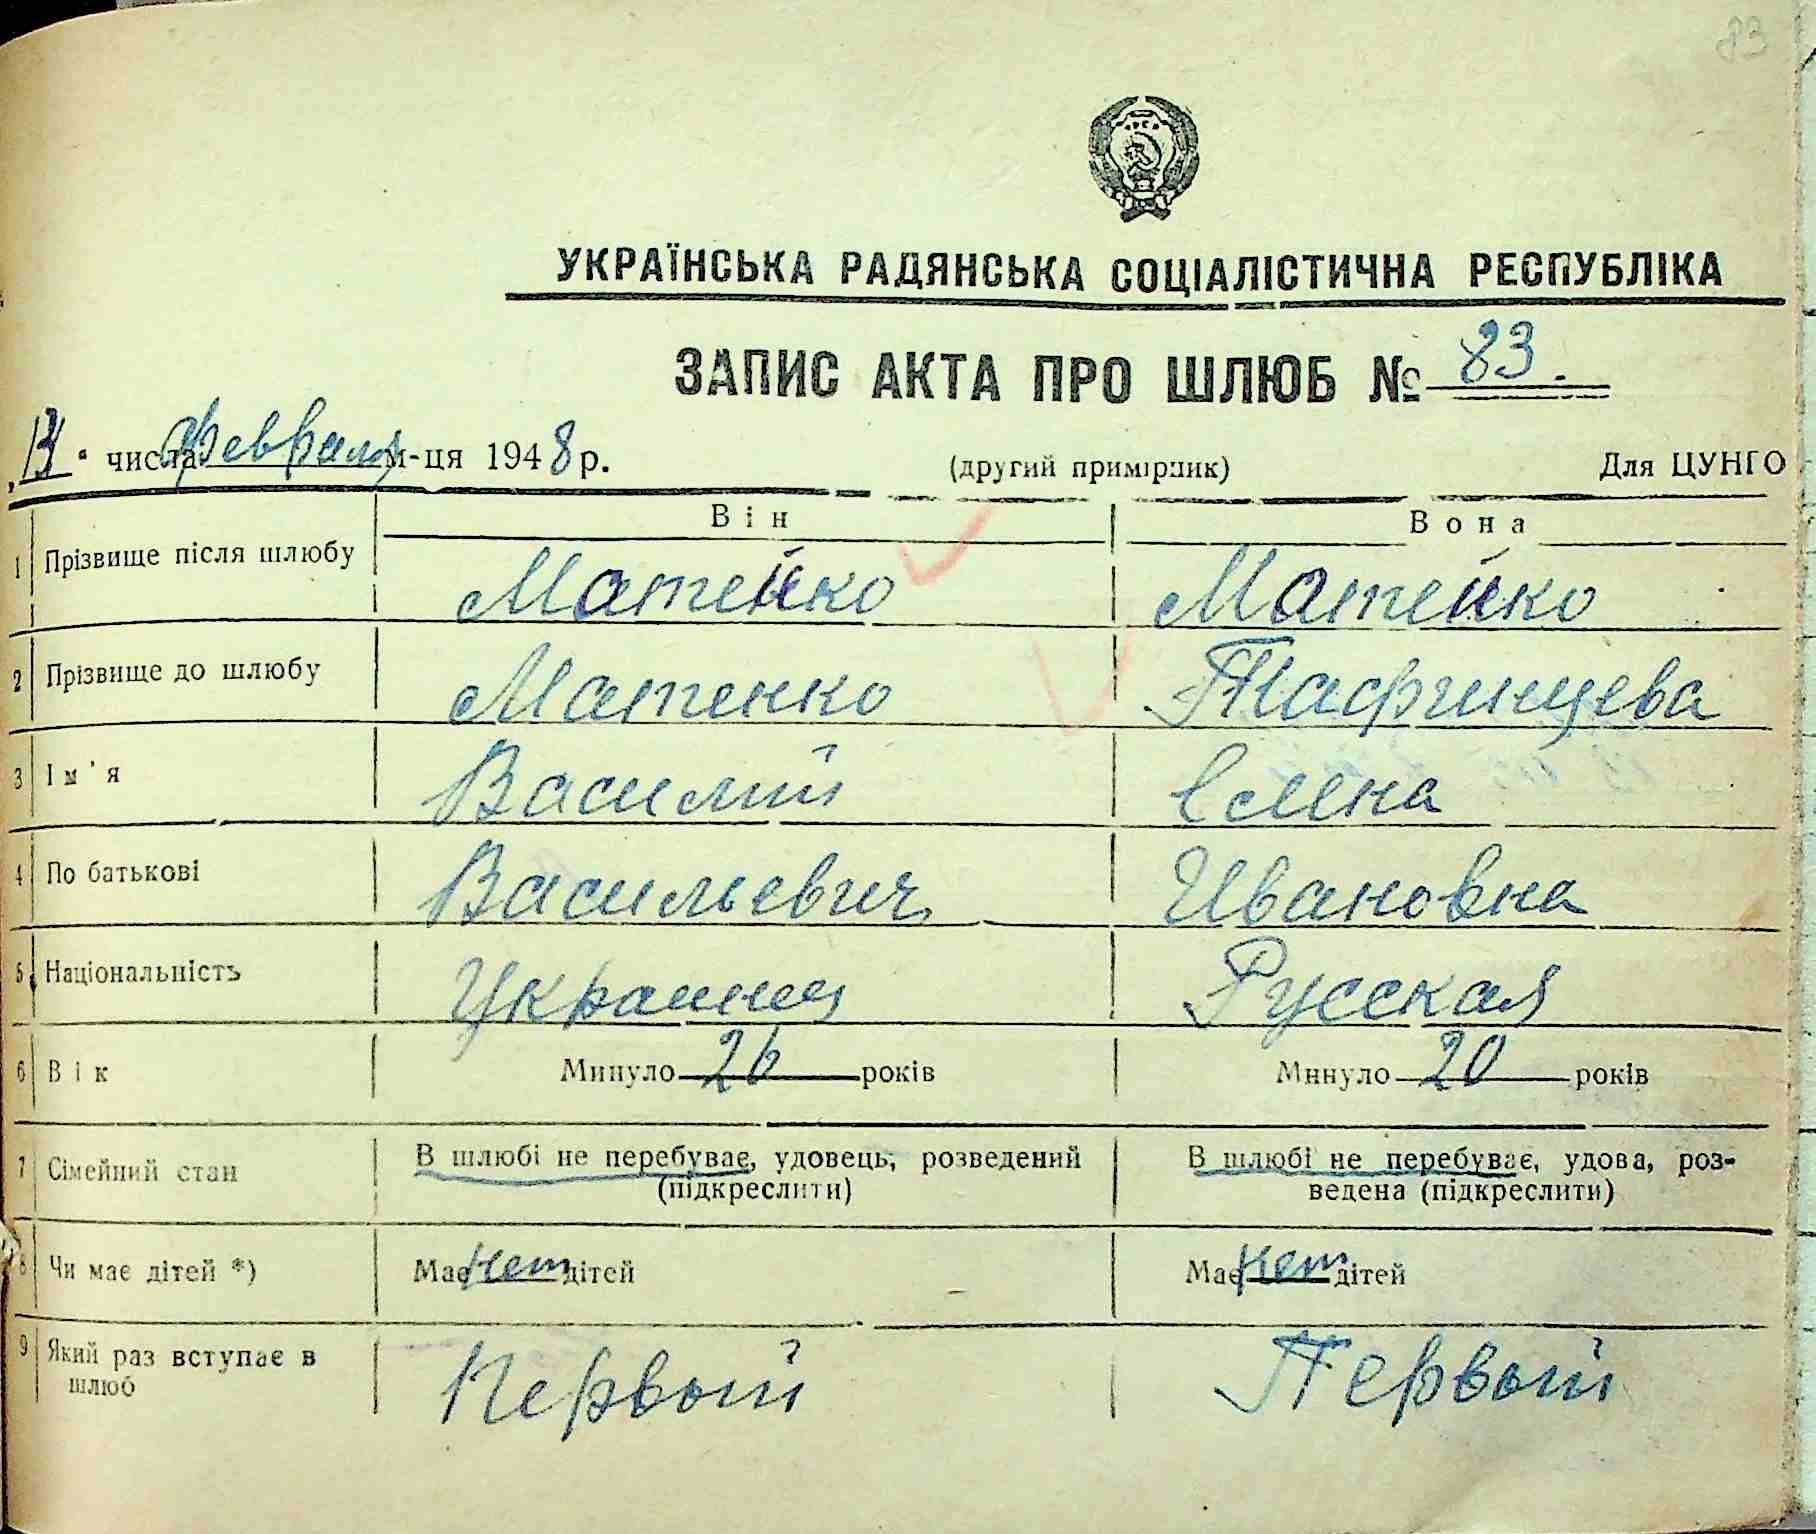 83
УКРАЇНСЬКА РАДЯНСЬКА СОЦІАЛІСТИЧНА РЕСПУБЛІКА
ЗАПИС АКТА ПРО ШЛЮБ № 83.
числа февраля м-ця 1948 р. (другий примірник) Для ЦУНГО
Він Вона
1 Прізвище після шлюбу Матейко Матейко
2 Прізвище до шлюбу Матенко
3 Ім'я Василий Елена
4 По батькові Васильевич Ивановна
5 Національність Украинец Русская
6 Вік Минуло 26 років Минуло 20 років
7 Сімейний стан В шлюбі не перебуває, удовець, розведений В шлюбі не перебуває, удова, роз-
(підкреслити) ведена (підкреслити)
8 Чи має дітей *) Має нет дітей Має нет дітей
9 Який раз вступає в Первый Первый
шлюб